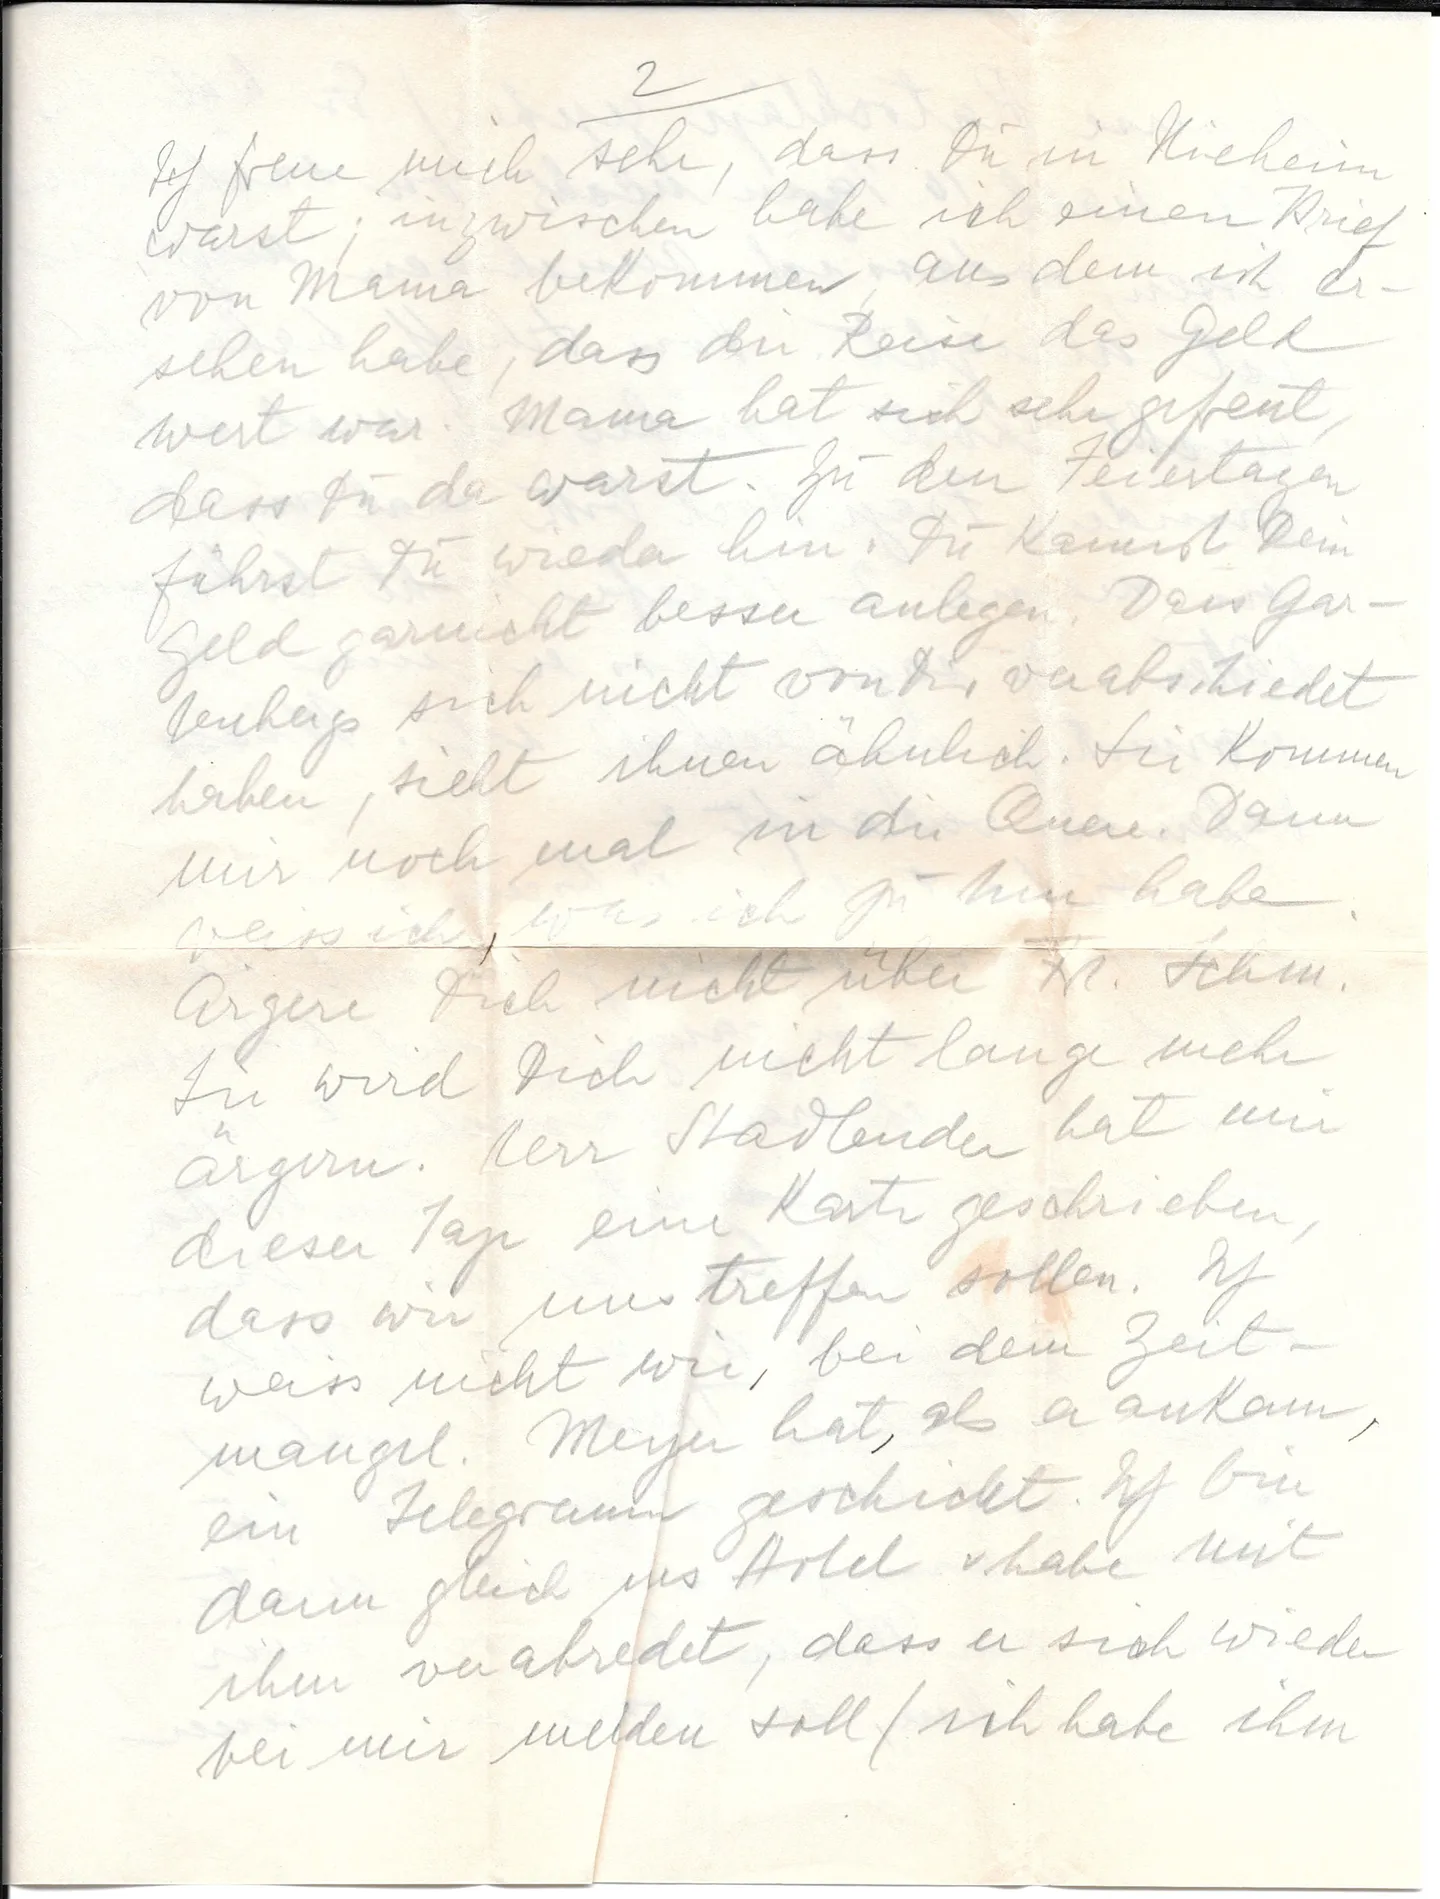 2
Ich freue mich sehr, dass Du in Nieheim
warst; inzwischen habe ich einen Brief
von Mama bekommen, aus dem ich er-
sehen habe, dass die Reise das Geld
wert war. Mama hat sich sehr gefreut,
dass Du da warst. Zu den Feiertagen
fährst Du wieder hin. Du kannst Dein
Geld garnicht besser anlegen. Dass Gar-
tenbergs sich nicht von Dir verabschiedet
haben, sieht ihnen ähnlich. Sie kommen
mir noch mal in die Quere. Dann
weiss ich, was ich zu tun habe.
Ärgere Dich nicht über Fr. Schm.
Sie wird Dich nicht lange mehr
ärgern. Herr Stadlender hat mir
dieser Tage eine Karte geschrieben,
dass wir uns treffen sollen. Ich
weiss nicht wie, bei dem Zeit-
mangel. Meyer hat, als er ankam,
ein Telegramm geschickt. Ich bin
dann gleich ins Hotel & habe mit
ihm verabredet, dass er sich wieder
bei mir melden soll / ich habe ihm